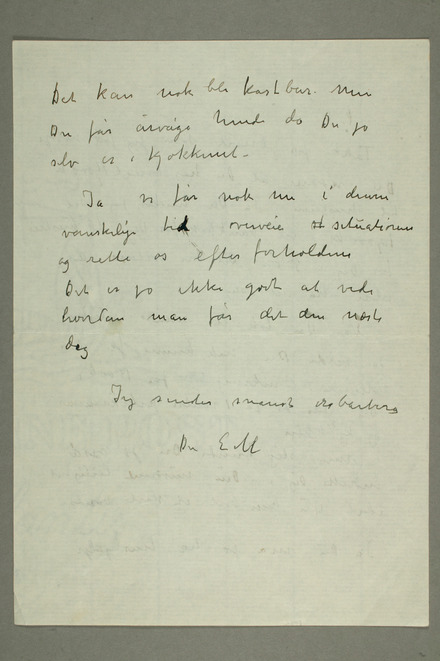 Det kan nok bli kostbar. Men
Du får årvåge hende da Du jo
selv er i kjøkkenet –
Ja vi får nok nu i denne
vanskelige tid overveie situationen
og rette os efter forholdene
Det er jo ikke godt at vide
hvordan man får det den næste
dag
Jeg sender snarest
Din E M